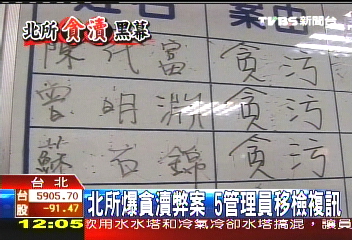 TVBS 新聞台
北所貪瀆黑幕
案由
陳代富 貪污
曾明淵 貪污
蘇百錦 貪污
台北
台股 5905.70
-91.47
北所爆貪瀆弊案 5管理員移檢複訊
12:05 飲用水水塔和冷氣冷卻水塔搞混，讓員